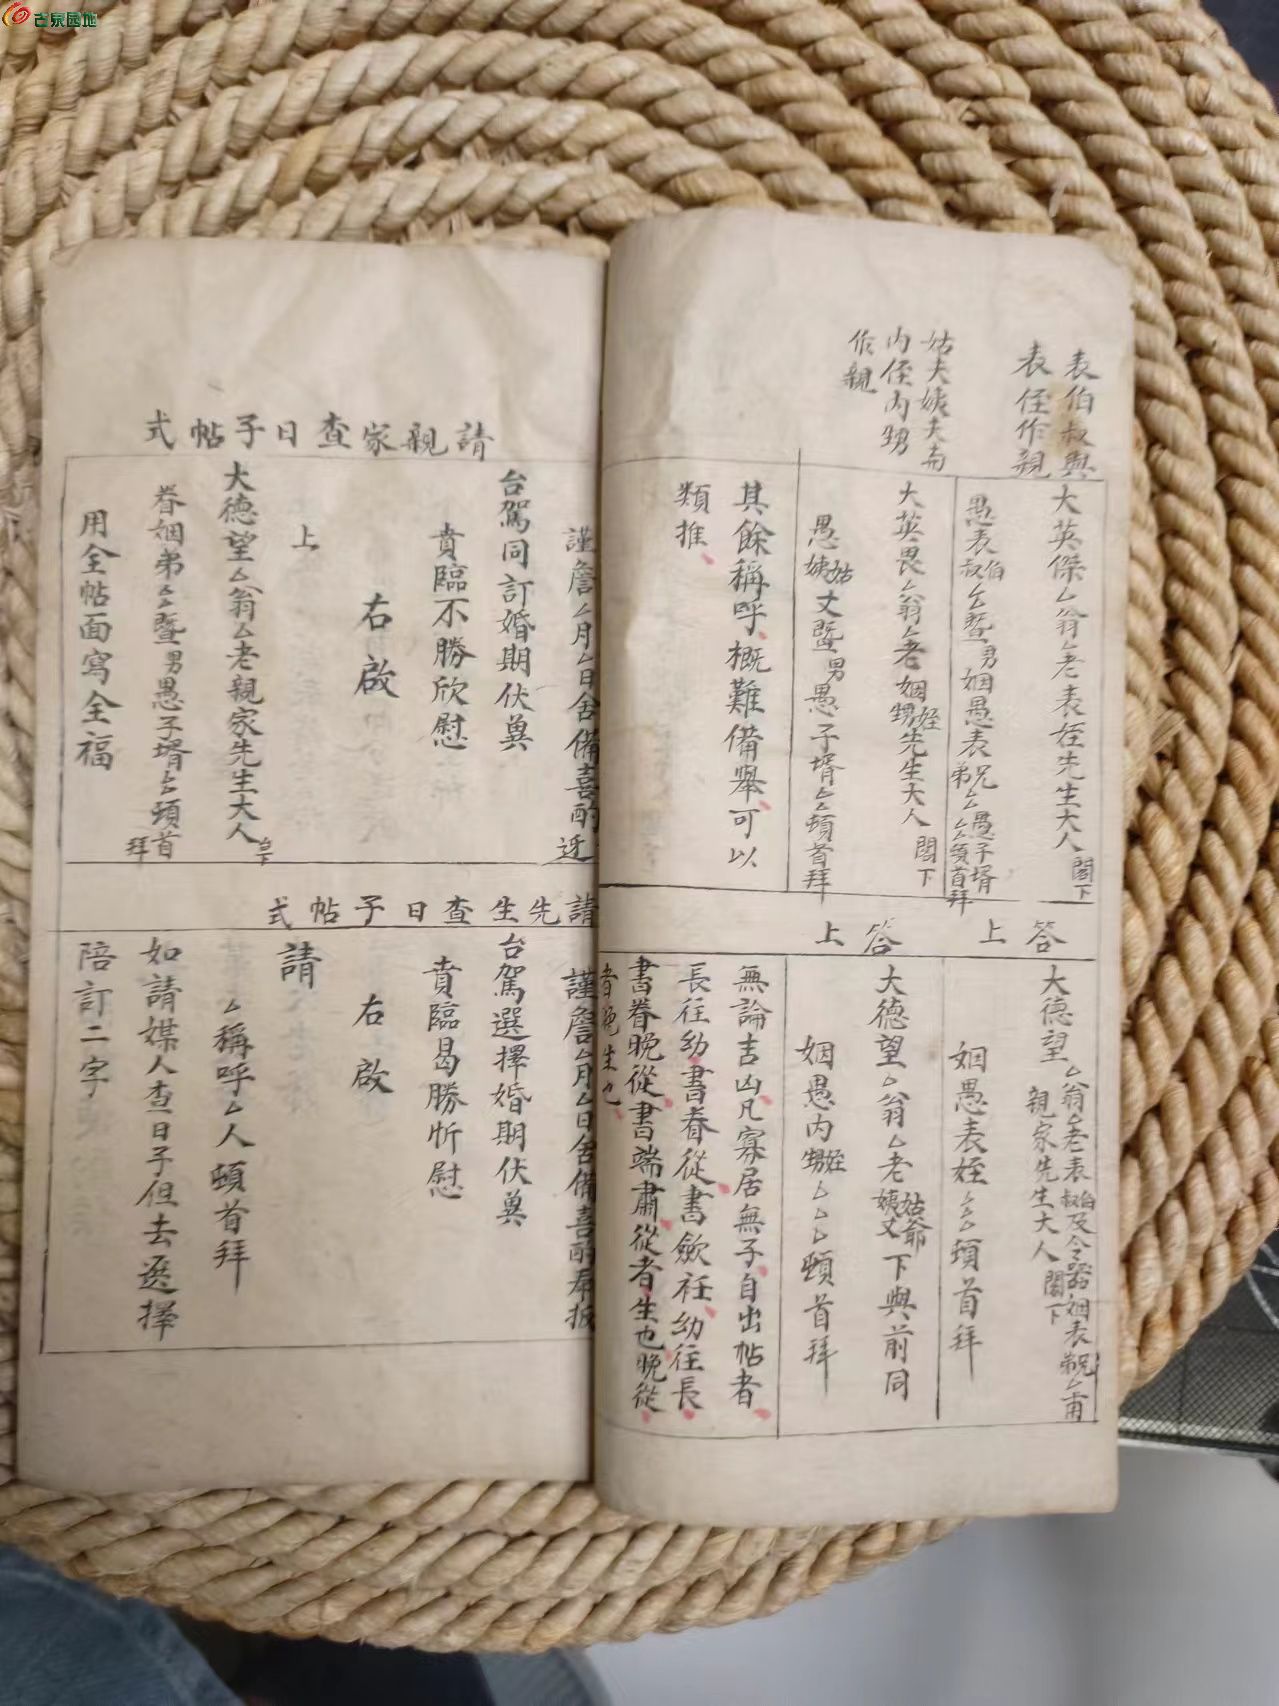 古泉园地
表伯叔與
表侄作親
大英傑厶翁厶老表姪先生大人閣下
愚表伯叔厶暨男姻愚表兄弟厶厶愚子壻厶頓首拜
姑夫姨夫與
內侄內甥
作親
大英畏厶翁厶老姻姪甥先生大人閣下
愚姑姨丈暨男愚子壻厶厶頓首拜
其餘稱呼、概難備舉、可以
類推、
答上
大德望厶翁厶老表伯叔及令器姻表兄弟厶甫
親家先生大人閣下
姻愚表姪厶厶頓首拜
答上
大德望厶翁厶老姑爺姨丈下與前同
姻愚內姪甥厶厶厶頓首拜
無論吉凶、凡寡居無子、自出帖者、
長往幼、書眷從、書歛衽、幼往長、
書眷晚從、書端肅、從者、生也、晚從、
者晚生也、
請親家查日子帖式
謹詹厶月厶日舍備喜酌迓
台駕同訂婚期伏冀
賁臨不勝欣慰
右啟
上
大德望厶翁厶老親家先生大人台下
眷姻弟厶厶暨男愚子壻厶頓首拜
用全帖面寫全福
請先生查日子帖式
謹詹厶月厶日舍備喜酌扳
台駕選擇婚期伏冀
賁臨曷勝忻慰
右啟
請
厶稱呼厶人頓首拜
如請媒人查日子但去选擇
陪訂二字